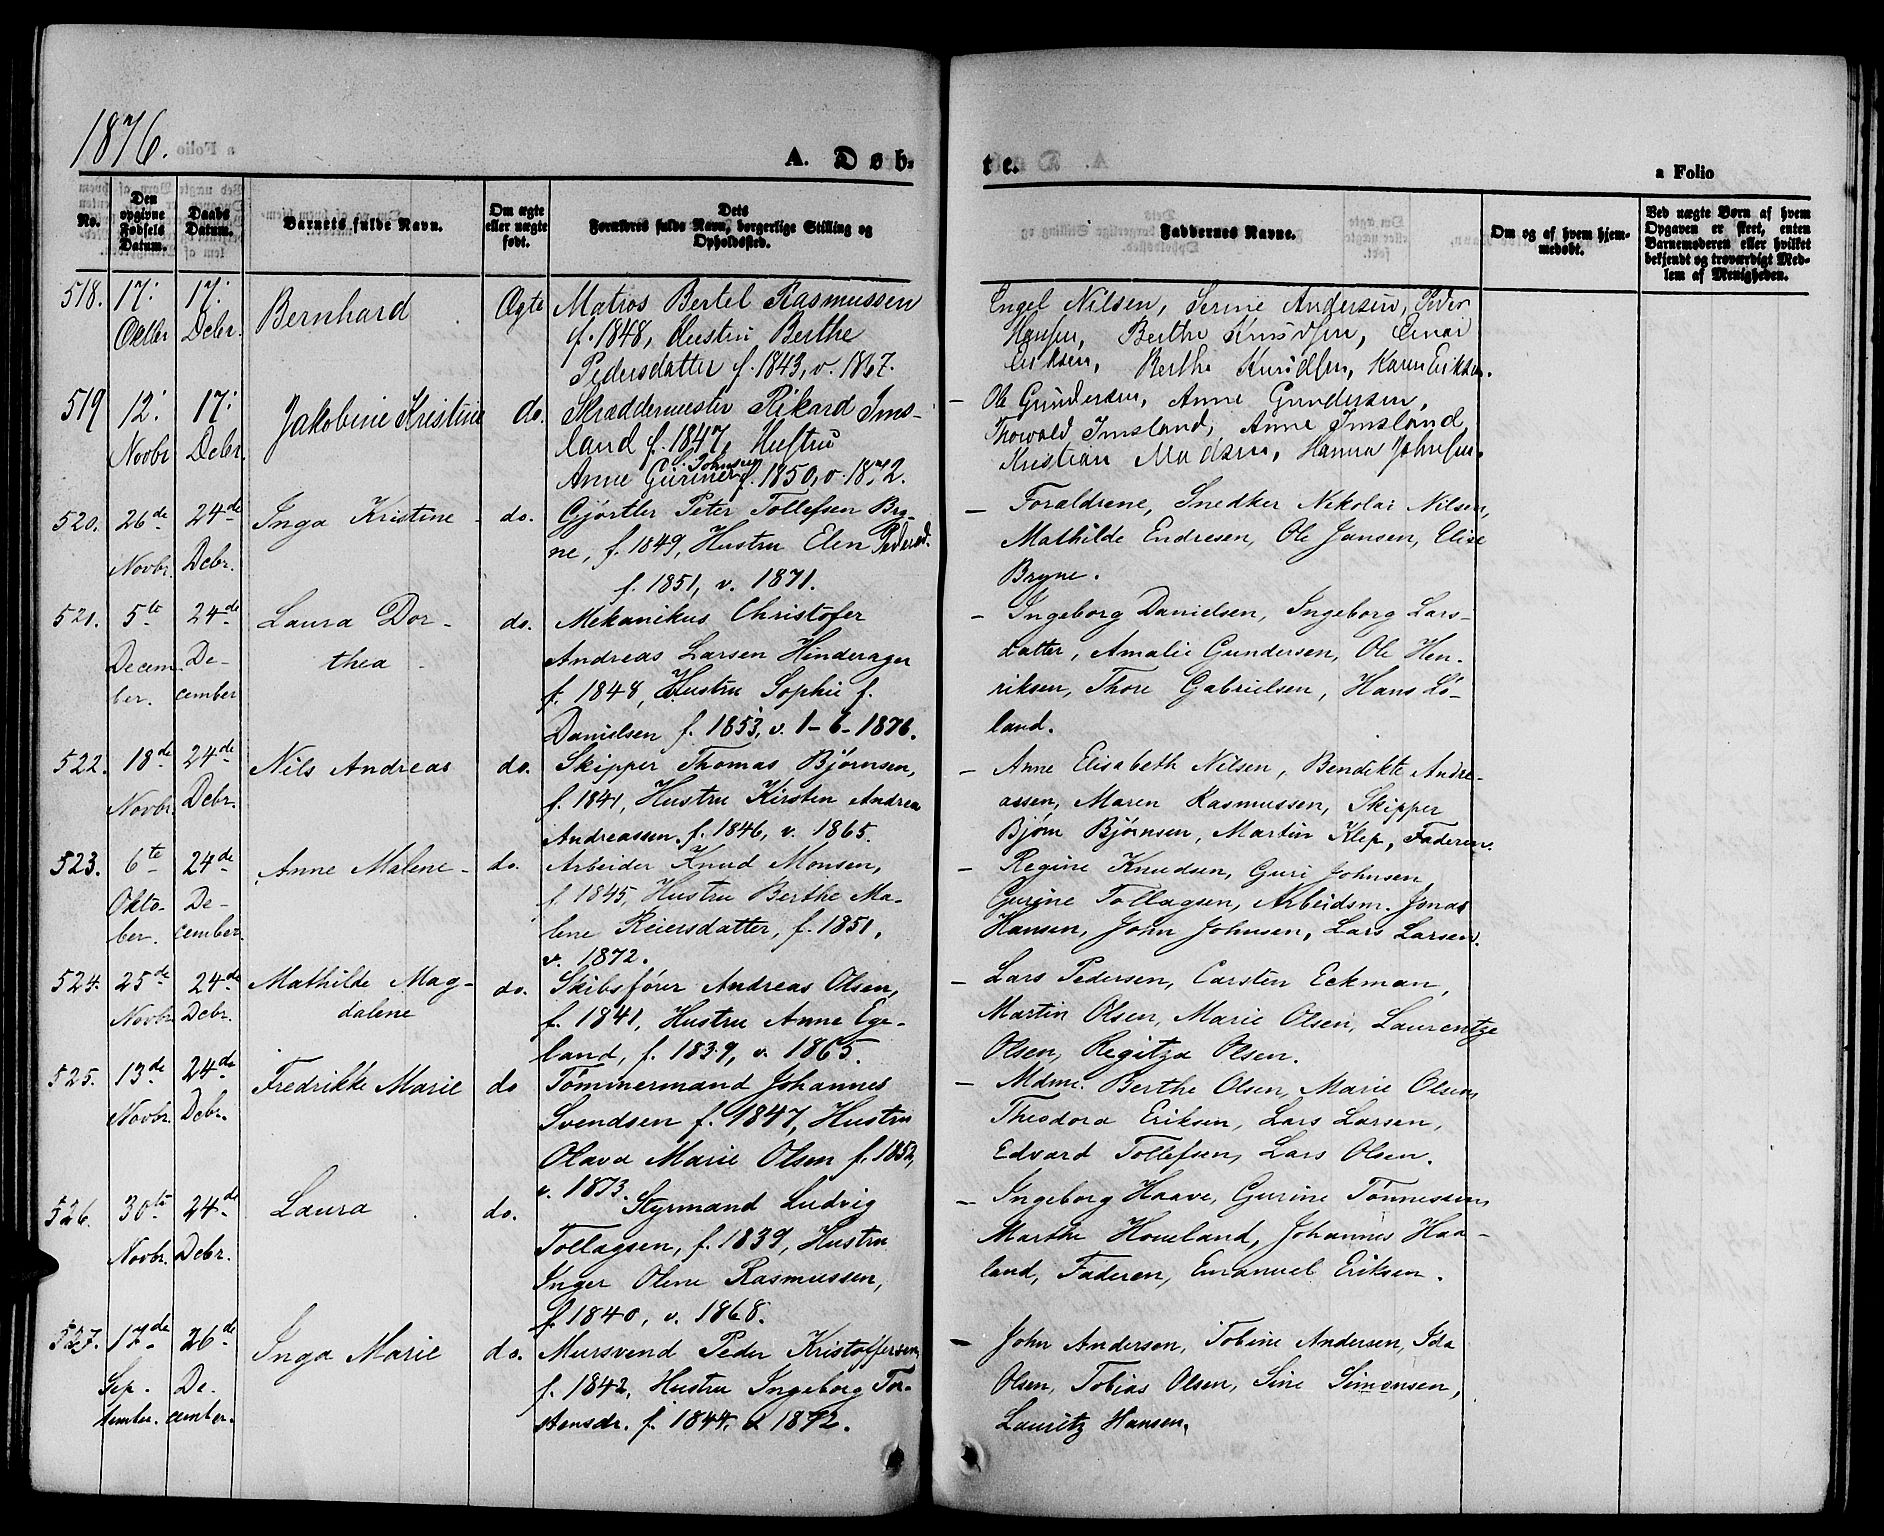 1876.
A. Døb-
te.
a Folio
No.
Den opgivne Fødsels Datum.
Daabs Datum.
Barnets fulde Navn.
Om ægte eller uægte født.
Dets Forældres fulde Navn, borgerlige Stilling og Opholdssted.
Faddernes Navne.
Om og af hvem hjemmedøbt.
Ved uægte Børn af hvem Opgaven er skeet, enten Barnemoderen eller hvilket bekjendt og troværdigt Medlem af Menigheden.
518. 17: Octbr 17: Debr. Bernhard Ægte Matros Bertel Rasmussen
f. 1848, Hustru Berthe
Pedersdatter f. 1843, v. 1867.
Engel Nilsen, Serine Andersen, Peder
Hansen, Berthe Knudsen, Einar
Eriksen, Berthe Knudsen, Karen Eriksen.
519 12: Novbr 17: Debr. Jakobine Kristine do. Skræddermester Rikard Ims-
land f. 1847, Hustru
Anne Gurine Johnsen f. 1850, v. 1872.
— Ole Gundersen, Anne Gundersen,
Thorvald Imsland, Anne Imsland,
Kristian Madsen, Hanna Johnsen.
520. 26de Novbr. 24de Debr. Inga Kristine do. Gjørtler Peter Tollefsen Bry-
ne, f. 1849, Hustru Elen Pedersd.
f. 1851, v. 1871.
— Forældrene, Snedker Nikolai Nilsen,
Mathilde Endresen, Ole Jansen, Elise
Bryne.
521. 5te Decem-
ber. 24de De-
cember Laura Dor-
thea do. Mekanikus Christofer
Andreas Larsen Hinderager
f. 1848, Hustru Sophie f.
Danielsen f. 1853, v. 1-6-1876.
— Ingeborg Danielsen, Ingeborg Lars-
datter, Amalie Gundersen, Ole Hen-
riksen, Thore Gabrielsen, Hans Lö-
land.
522. 18de Novbr. 24de Debr. Nils Andreas do. Skipper Thomas Bjørnsen,
f. 1841, Hustru Kirsten Andrea
Andreassen, f. 1846, v. 1865.
— Anne Elisabeth Nilsen, Bendikte Andre-
assen, Maren Rasmussen, Skipper
Bjørn Bjørnsen, Martin Klep, Faderen.
523. 6te Okto-
ber. 24de De-
cember. Anne Malene do. Arbeider Knud Monsen,
f. 1845, Hustru Berthe Ma-
lene Reiersdatter, f. 1851,
v. 1872.
— Regine Knudsen, Guri Johnsen
Gurine Tollagsen, Arbeidsm. Jonas
Hansen, John Johnsen, Lars Larsen.
524. 25de Novbr 24de Debr. Mathilde Mag-
dalene do. Skibsfører Andreas Olsen,
f. 1841, Hustru Anne Ege-
land, f. 1839, v. 1865.
— Lars Pedersen, Carsten Eckman,
Martin Olsen, Marie Olsen, Laurentze
Olsen, Regitza Olsen.
525. 13de Novbr. 24de Debr. Fredrikke Marie do Tømmermand Johannes
Svendsen f. 1847, Hustru
Olava Marie Olsen f. 1852,
v. 1873.
— Mdme. Berthe Olsen, Marie Olsen,
Theodora Eriksen, Lars Larsen,
Edvard Tollefsen, Lars Olsen.
526. 30te Novbr. 24de Debr. Laura do. Styrmand Ludvig
Tollagsen, f. 1839, Hustru
Inger Oline Rasmussen,
f. 1840, v. 1868.
— Ingeborg Haave, Gurine Tønnessen,
Marthe Houeland, Johannes Haa-
land, Faderen, Emanuel Eriksen.
527. 17de Sep-
tember. 26de De-
cember. Inga Marie do. Mursvend Peder Kristoffersen,
f. 1842, Hustru Ingeborg Tor-
stensdr. f. 1844. v 1872.
— John Andersen, Tobine Andersen, Ida
Olsen, Tobias Olsen, Sine Simonsen,
Lauritz Hansen.